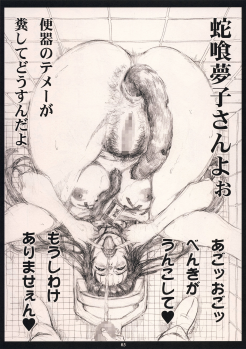 蛇喰夢子さんよぉ
便器のテメーが
糞してどうすんだよ
あごッおごッ
べんきが
うんこして♥
もうしわけ
ありませぇん♥